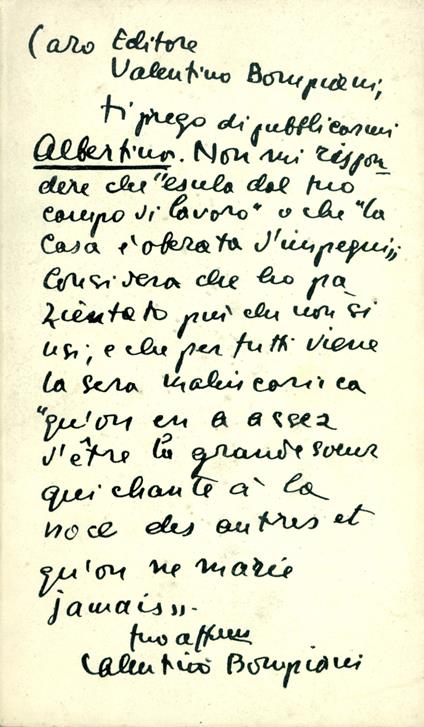 Caro Editore
Valentino Bompiani,
ti prego di pubblicarmi
Albertina. Non mi rispon-
dere che "esula dal tuo
campo di lavoro" o che "la
Casa è oberata d'impegni".
Considera che ho pa-
zientato più che non si
usi, e che per tutti viene
la sera malinconica
"qu'on en a assez
d'être la grande soeur
qui chante à la
noce des autres et
qu'on ne marie
jamais".
tuo affmo
Valentino Bompiani